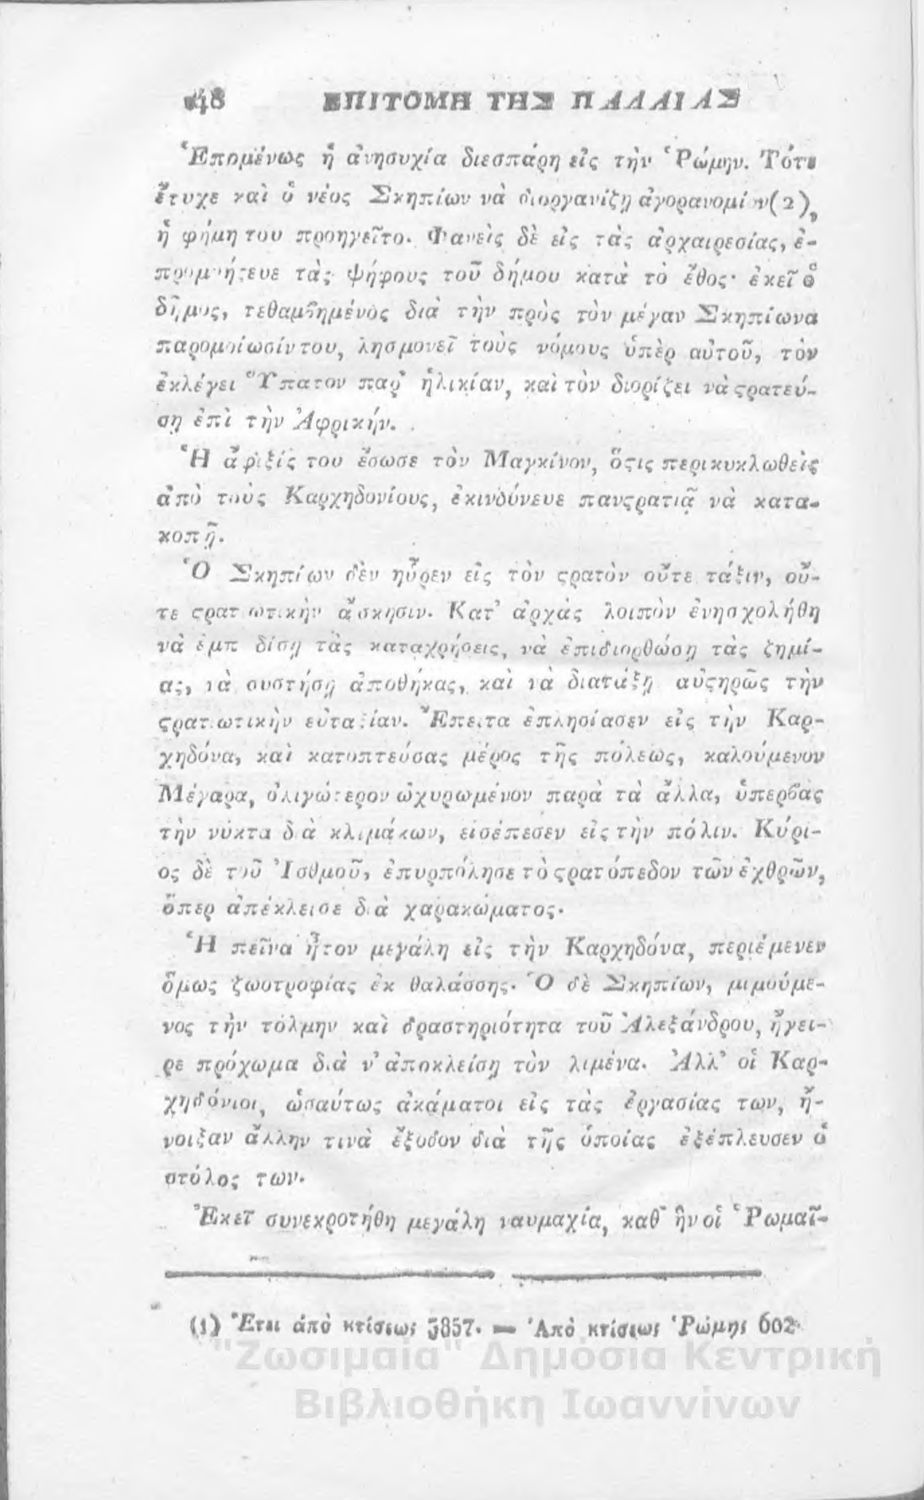 48 ΕΠΙΤΟΜΗ ΤΗΣ ΠΑΛΑΙΑΣ
Ἑπομένως ἡ ἀνησυχία διεσπάρη εἰς τὴν Ῥώμην. Τότε
ἔτυχε καὶ ὁ νέος Σκηπίων νὰ διοργανίζῃ ἀγορανομίαν(2),
ἡ φήμη του προηγεῖτο. Φανεὶς δὲ εἰς τὰς ἀρχαιρεσίας, ἐ-
προμήτευε τὰς ψήφους τοῦ δήμου κατὰ τὸ ἔθος· ἐκεῖ ὁ
δῆμος, τεθαμβημένος διὰ τὴν πρὸς τὸν μέγαν Σκηπίωνα
παρομοίωσίν του, λησμονεῖ τοὺς νόμους ὑπὲρ αὐτοῦ, τὸν
ἐκλέγει Ὕπατον παρ' ἡλικίαν, καὶ τὸν διορίζει νὰ ϛρατεύ-
σῃ ἐπὶ τὴν Ἀφρικήν.
Ἡ ἄφιξίς του ἔσωσε τὸν Μαγκίνον, ὅϛις περικυκλωθεὶς
ἀπὸ τοὺς Καρχηδονίους, ἐκινδύνευε πανϛρατιᾷ νὰ κατα-
κοπῇ.
Ὁ Σκηπίων δὲν ηὗρεν εἰς τὸν ϛρατὸν οὔτε τάξιν, οὔ-
τε ϛρατιωτικὴν ἄσκησιν. Κατ' ἀρχὰς λοιπὸν ἐνησχολήθη
νὰ ἐμποδίσῃ τὰς καταχρήσεις, νὰ ἐπιδιορθώσῃ τὰς ζημί-
ας, νὰ συστήσῃ ἀποθήκας, καὶ νὰ διατάξῃ αὐϛηρῶς τὴν
ϛρατιωτικὴν εὐταξίαν. Ἔπειτα ἐπλησίασεν εἰς τὴν Καρ-
χηδόνα, καὶ κατοπτεύσας μέρος τῆς πόλεως, καλούμενον
Μέγαρα, ὀλιγώτερον ὠχυρωμένον παρὰ τὰ ἄλλα, ὑπερβὰς
τὴν νύκτα διὰ κλιμάκων, εἰσέπεσεν εἰς τὴν πόλιν. Κύρι-
ος δὲ τοῦ Ἰσθμοῦ, ἐπυρπόλησε τὸ ϛρατόπεδον τῶν ἐχθρῶν,
ὅπερ ἀπέκλεισε διὰ χαρακώματος.
Ἡ πεῖνα ἦτον μεγάλη εἰς τὴν Καρχηδόνα, περιέμενεν
ὅμως ζωοτροφίας ἐκ θαλάσσης. Ὁ δὲ Σκηπίων, μιμούμε-
νος τὴν τόλμην καὶ δραστηριότητα τοῦ Ἀλεξάνδρου, ἤγει-
ρε πρόχωμα διὰ ν' ἀποκλείσῃ τὸν λιμένα. Ἀλλ' οἱ Καρ-
χηδόνιοι, ὡσαύτως ἀκάματοι εἰς τὰς ἐργασίας των, ἤ-
νοιξαν ἄλλην τινὰ ἔξοδον διὰ τῆς ὁποίας ἐξέπλευσεν ὁ
στόλος των.
Ἐκεῖ συνεκροτήθη μεγάλη ναυμαχία, καθ' ἣν οἱ Ῥωμαῖ-
(1) Ἔτει ἀπὸ κτίσεως 3857. — Ἀπὸ κτίσεως Ῥώμης 602.
"Ζωσιμαία" Δημόσια Κεντρική
Βιβλιοθήκη Ιωαννίνων